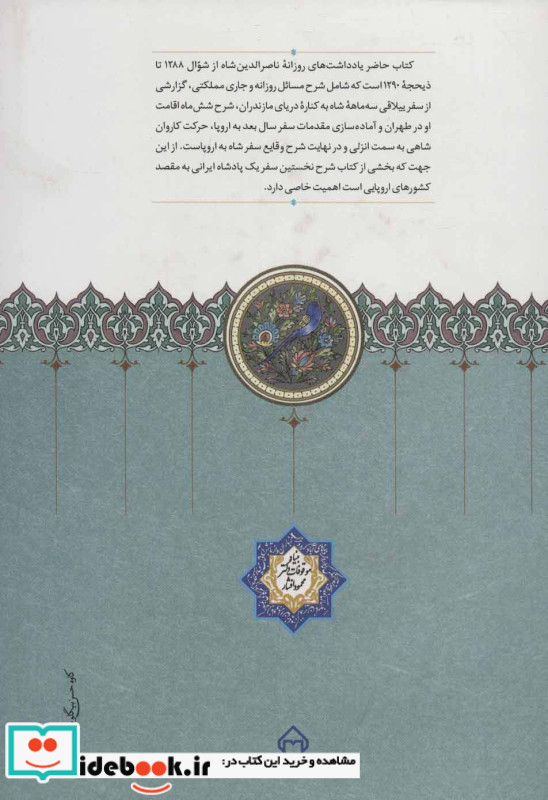 کتاب حاضر یادداشت‌های روزانهٔ ناصرالدین‌شاه از شوّال ۱۲۸۸ تا
ذیحجهٔ ۱۲۹۰ است که شامل شرح مسائل روزانه و جاری مملکتی، گزارشی
از سفر ییلاقی سه‌ماههٔ شاه به کنارهٔ دریای مازندران، شرح شش‌ماه اقامت
او در طهران و آماده‌سازی مقدمات سفر سال بعد به اروپا، حرکت کاروان
شاهی به سمت انزلی و در نهایت شرح وقایع سفر شاه به اروپاست. از این
جهت که بخشی از کتاب شرح نخستین سفر یک پادشاه ایرانی به مقصد
کشورهای اروپایی است اهمیت خاصی دارد.
بنیاد
موقوفات دکتر
محمود افشار
مشاهده و خرید این کتاب در:
idebook.ir